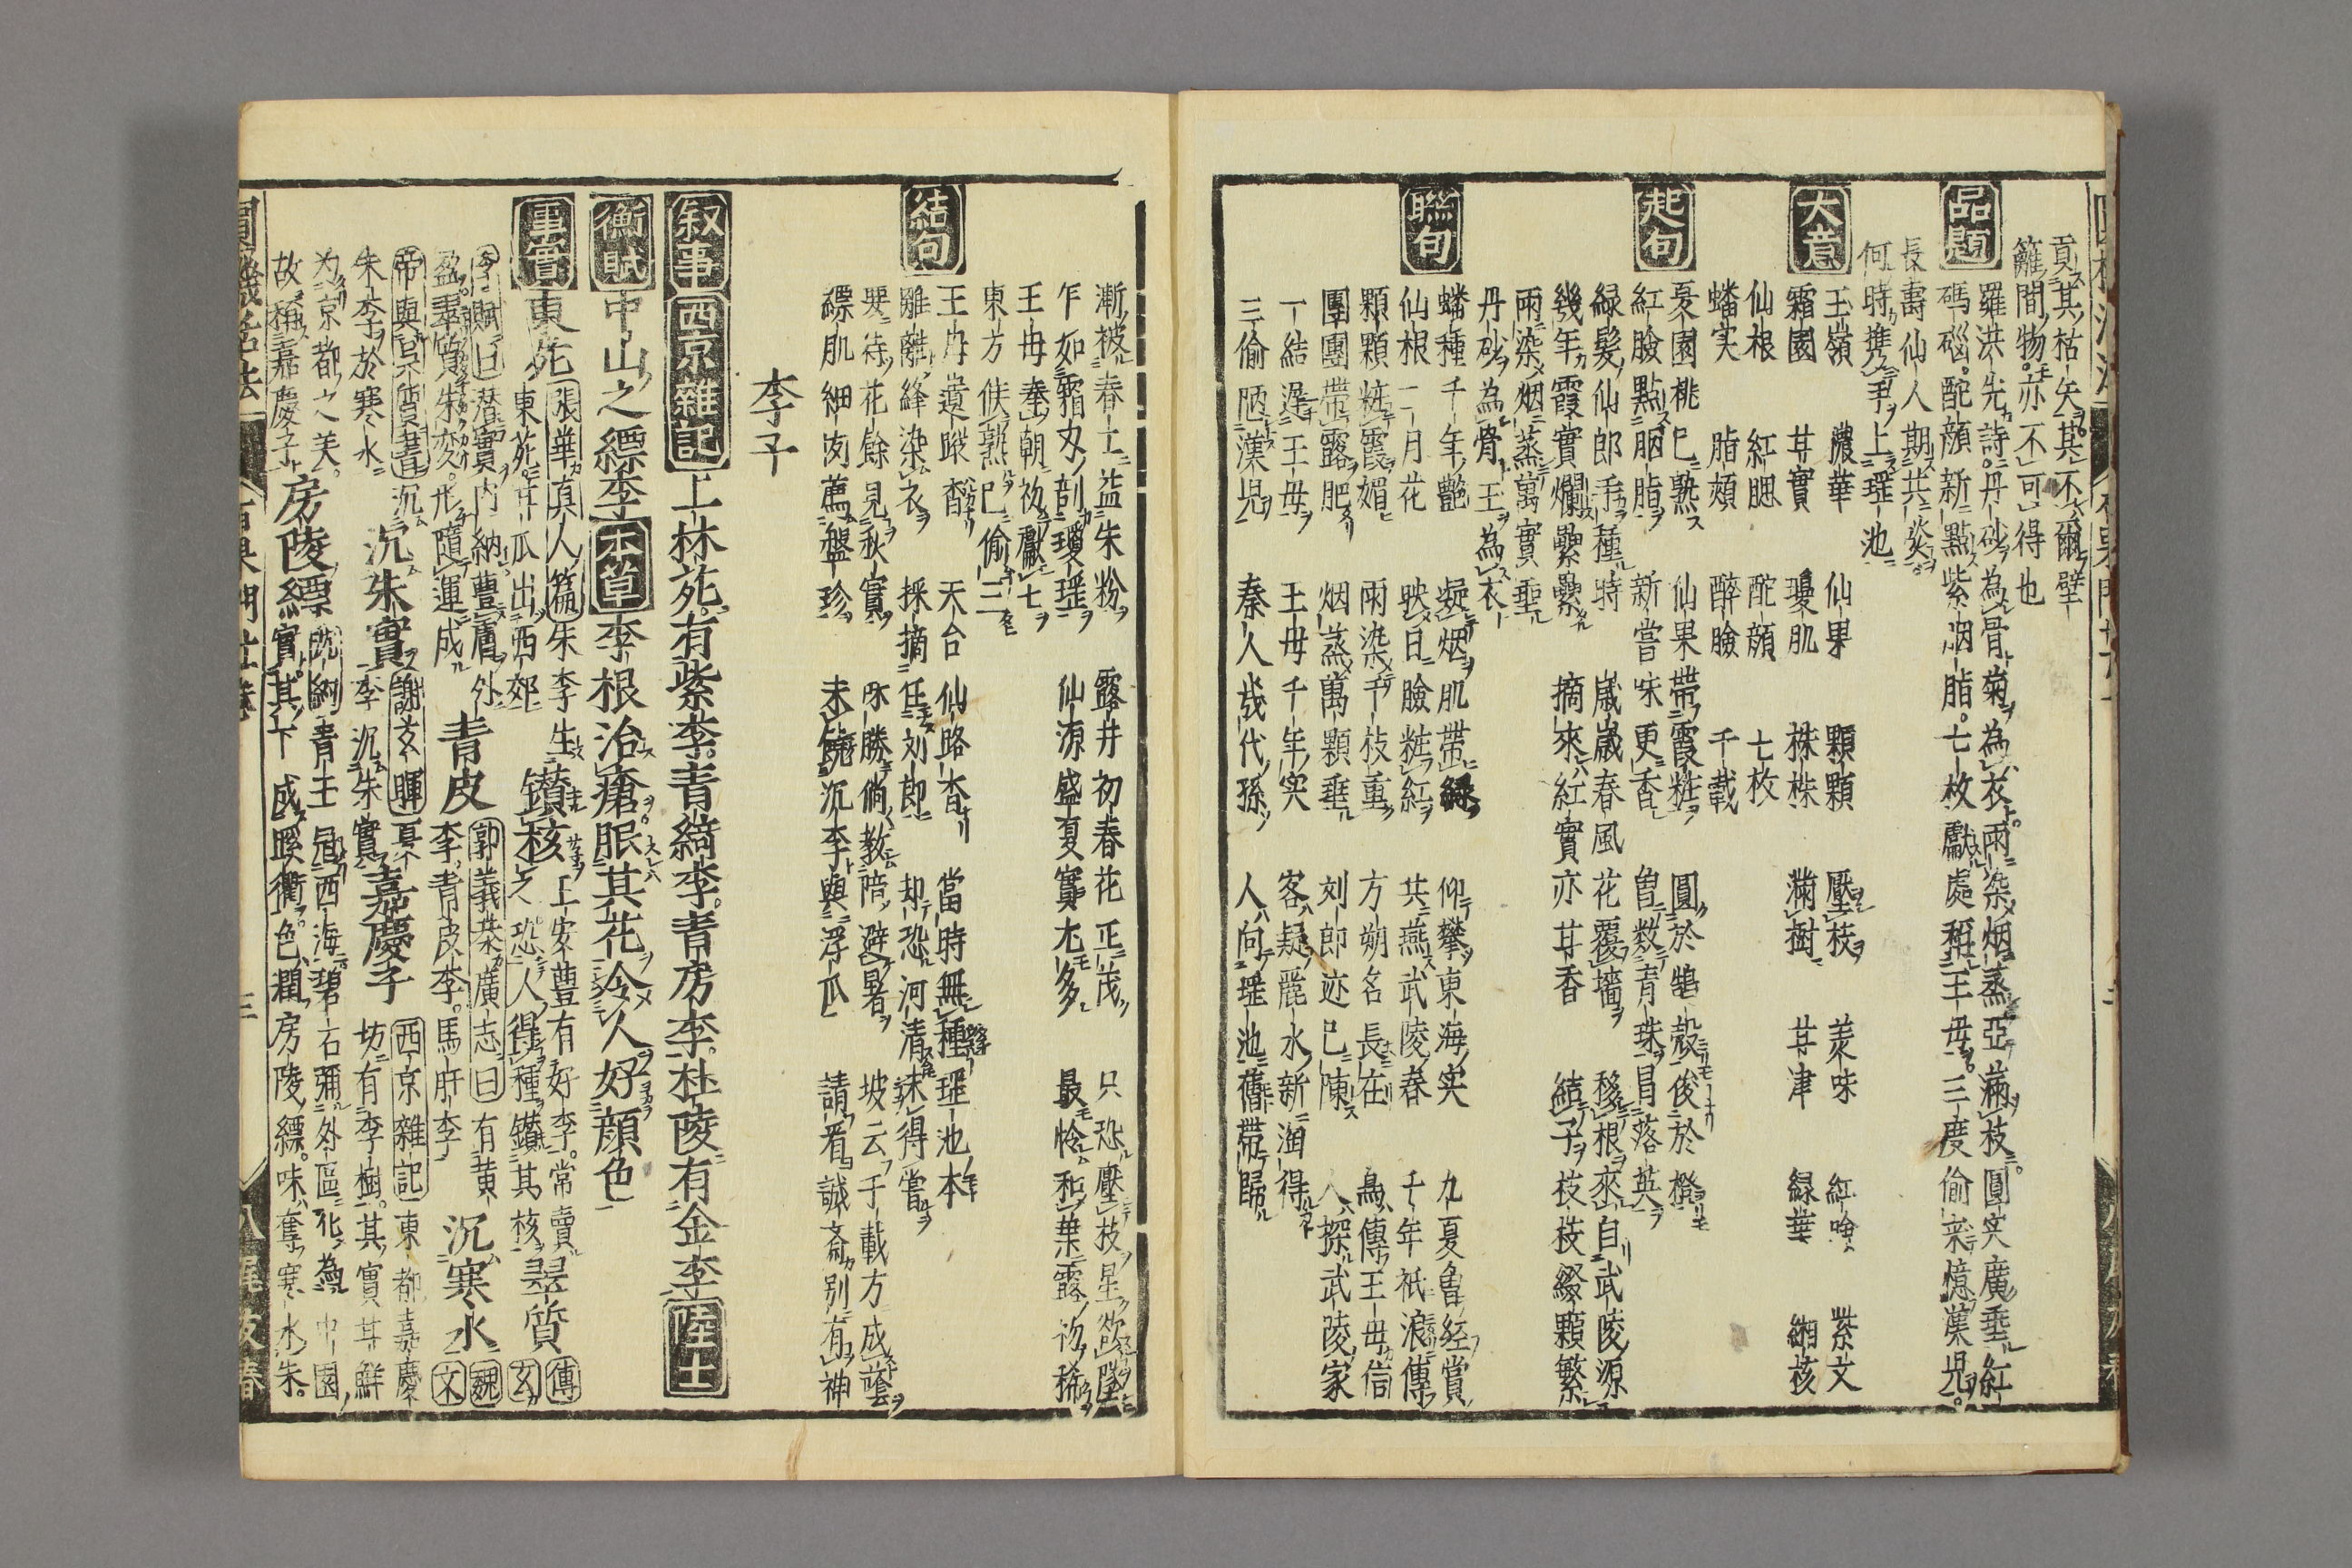 貢其枯矣其不爾壁
籬間物亦不可得也
品題
羅洪先詩丹砂為骨菊為衣兩染烟蒸亞滿枝圓实廣垂紅
碼碯酡顔新點紫烟脂七枚獻處種王母三度偷来憶漢児
長壽仙人期共
何時携手上瑶池
大意
玉嶺 濃華 仙果 顆顆 壓枝 美味 紅 紫文
霜園 甘實 瓊肌 株株 滿樹 甘津 緑華 緗核
仙根 紅腮 酡顔 七枚
蟠实 脂頰 醉臉 千載
起句
夏園桃已熟 仙果帶霞粧 圓於鵠殻俊於橙
紅臉點胭脂 新嘗味更香 曽数青珠昌落英
緑髪仙郎手種時 歳歳春風花覆墻 移根來自武陵源
幾年霞實爛纍纍 摘來紅實亦甘香 結子枝枝綴顆繁
兩染烟蒸萬實垂
丹砂為骨玉為衣
聯句
蟠種千年艷 凝烟肌帶緑 仰攀東海实 九夏曽經賞
仙根一月花 映日臉粧紅 共燕武陵春 千年祇浪傳
顆顆粧霞媚 兩染千枝重 方朔名長在 鳥傳王母信
團團帶露肥 烟蒸萬顆垂 刘郎迹已陳 人探武陵家
一結遅王母 王母千年实 客疑麗水新淘得
三偷陋漢児 秦人幾代孫 人向瑶池舊帶歸
漸被春工益朱粉 露井初春花正茂 只恐壓枝星欲墜
乍如霜刃剖瓊瑶 仙源盛夏實尤多 最怜和葉露初稀
王母奉朝初獻七
東方佚熟已偷三
結句
王母遺蹤杳 天台仙路杳 當時無種瑶池本
離離絳染衣 採摘任刘郎 却恐河清未得嘗
要待花餘見秋實 麻勝倘教陪避暑 坡云于載方成蔭
縹肌細肉薦盤珍 未饒沉李與浮瓜 請看誠斎別有神
李子
叙事 西京雜記 上林苑有紫李青綺李青房李杜陵有金李 陸士
衡賦 中山之縹李 本草 李根治瘡服其花令人好顔色
事實 東苑 張華真人篇 朱李生 鑽核 上安豊有好李常賣 翠質 傅
東苑甘瓜出西郊 之恐人得種鑽其核 玄
李賦曰 潜實内納豊膚外 青皮 郭義恭廣志曰 有黄 沉寒水 魏
盈翠質朱変形隨運成 李青皮李馬肝李 文
帝與呉質書 沉 沉朱實 謝玄暉 夏 西京雜記 東都嘉慶
朱李於寒水 李沉朱實 嘉慶子 坊有李樹其實甘鮮
为京都之美 房陵縹 沈約 青玉冠西海碧石彌外區化為中園
故稱嘉慶子 實其下成蹊衢色潤房陵縹味奪寒水朱